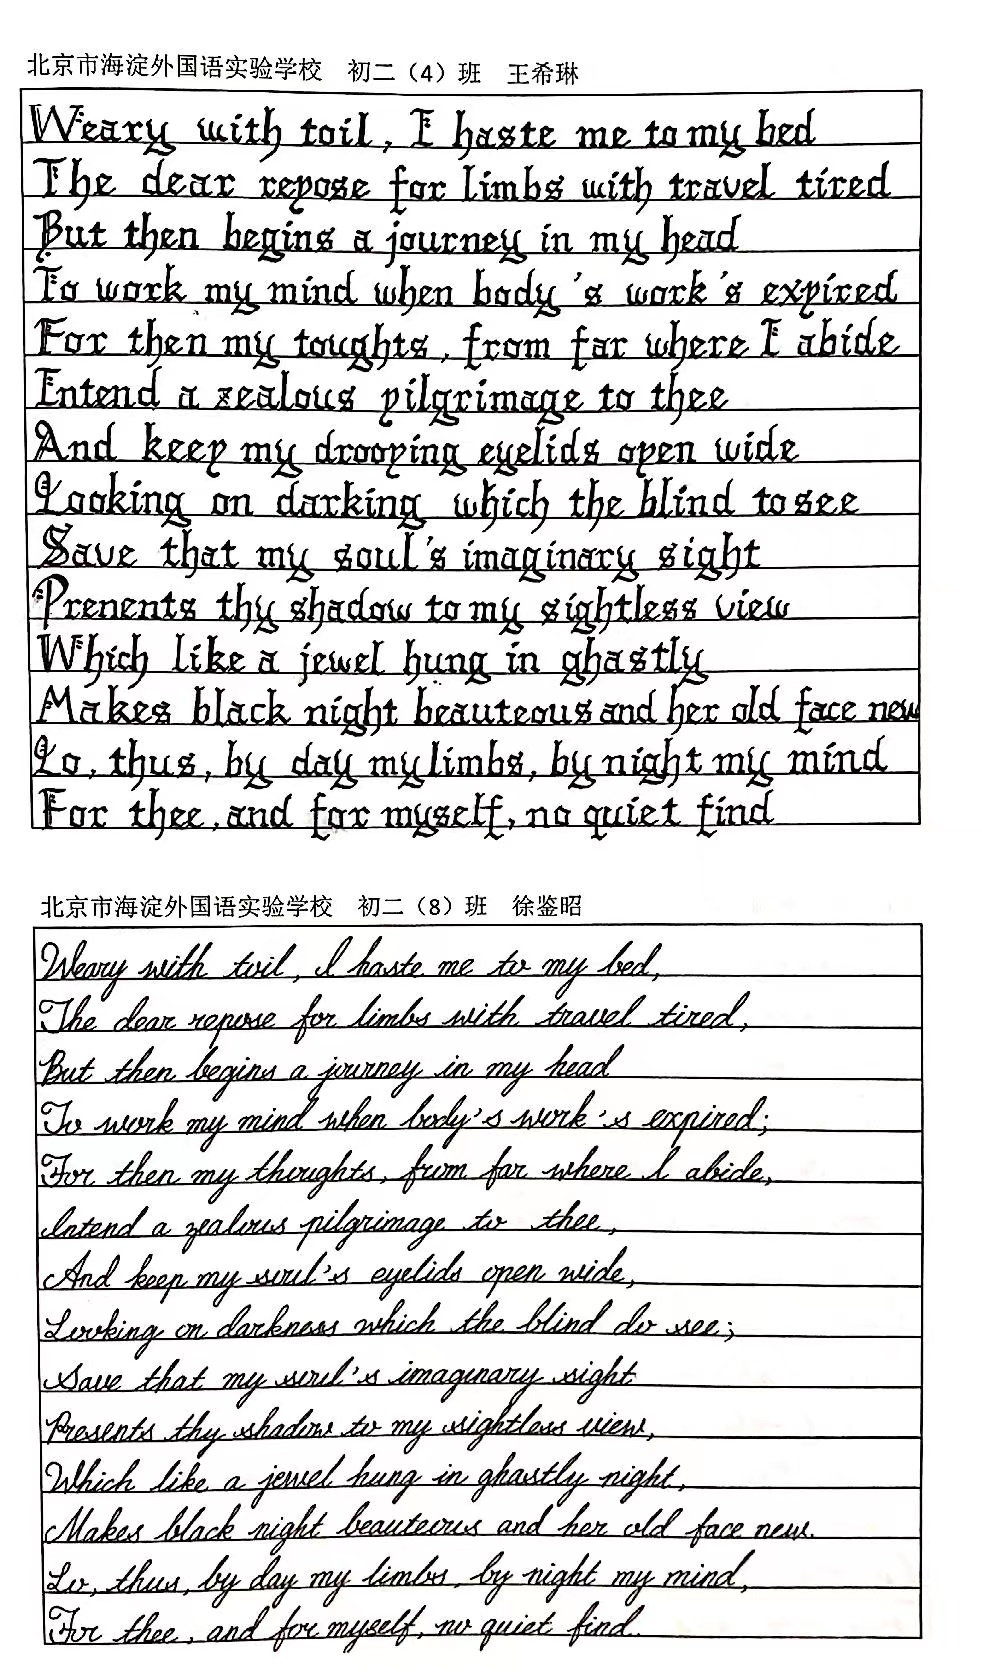 北京市海淀外国语实验学校 初二（4）班 王希琳
Weary with toil, I haste me to my bed
The dear repose for limbs with travel tired
But then begins a journey in my head
To work my mind when body's work's expired
For then my toughts, from far where I abide
Intend a zealous pilgrimage to thee
And keep my drooping eyelids open wide
Looking on darking which the blind to see
Save that my soul's imaginary sight
Prenents thy shadow to my sightless view
Which like a jewel hung in ghastly
Makes black night beauteous and her old face new
Lo, thus, by day my limbs, by night my mind
For thee, and for myself, no quiet find
北京市海淀外国语实验学校 初二（8）班 徐鉴昭
Weary with toil, I haste me to my bed,
The dear repose for limbs with travel tired,
But then begins a journey in my head
To work my mind when body's work's expired;
For then my thoughts, from far where I abide,
Intend a zealous pilgrimage to thee,
And keep my soul's eyelids open wide,
Looking on darkness which the blind do see;
Save that my soul's imaginary sight
Presents thy shadow to my sightless view,
Which like a jewel hung in ghastly night,
Makes black night beauteous and her old face new.
Lo, thus, by day my limbs, by night my mind,
For thee, and for myself, no quiet find.